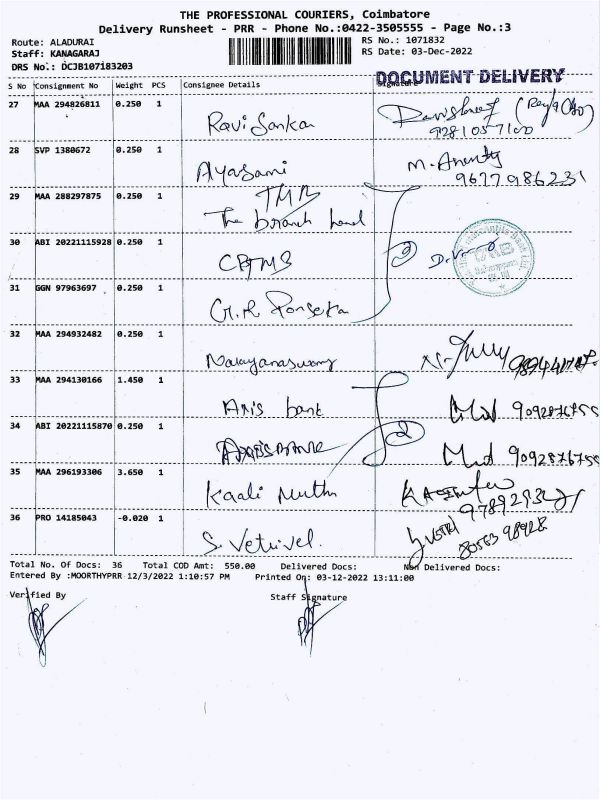 THE PROFESSIONAL COURIERS, Coimbatore
Delivery Runsheet - PRR - Phone No.:0422-3505555 - Page No.:3
Route: ALADURAI
RS No.: 1071832
Staff: KANAGARAJ
RS Date: 03-Dec-2022
DRS No.: DCJB107183203
DOCUMENT DELIVERY
S No Consignment No Weight PCS Consignee Details Signature
27 MAA 294826811 0.250 1 Ravi Sankar
9281057100
28 SVP 1380672 0.250 1 Ayyasami M.
9677986231
29 MAA 288297875 0.250 1 TMB
The branch head
30 ABI 20221115928 0.250 1
31 GGN 97963697 0.250 1 G.R
32 MAA 294932482 0.250 1 Narayanaswamy
33 MAA 294130166 1.450 1 Axis bank 9092876755
34 ABI 20221115870 0.250 1 9092876755
35 MAA 296193306 3.650 1 Kaali Muthu
36 PRO 14185043 -0.020 1 S. Vetrivel.
Total No. Of Docs: 36 Total COD Amt: 550.00 Delivered Docs: Non Delivered Docs:
Entered By :MOORTHYPRR 12/3/2022 1:10:57 PM Printed On: 03-12-2022 13:11:00
Verified By Staff Signature